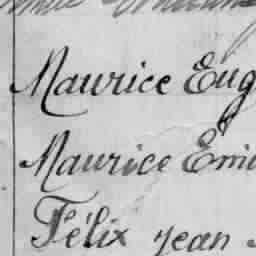 Maurice Eug
Maurice Emi
Félix jean